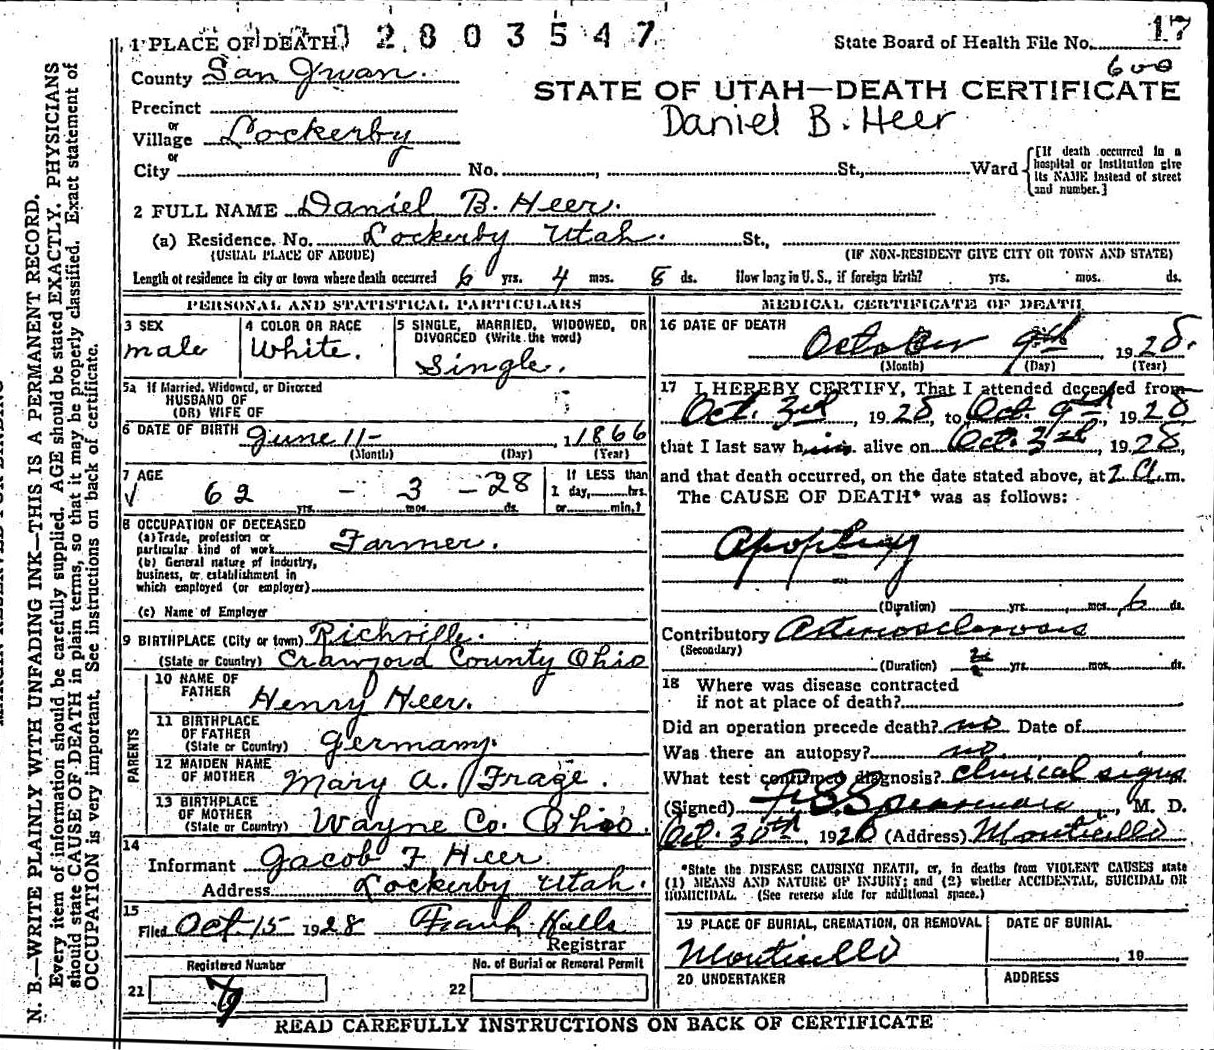 0 2 8 0 3 5 4 7
17
1 PLACE OF DEATH
State Board of Health File No.
600
County San Juan.
STATE OF UTAH—DEATH CERTIFICATE
Precinct
Daniel B. Heer
or
Village Lockerby
or
City No. , St., Ward
[If death occurred in a hospital or institution give its NAME instead of street and number.]
2 FULL NAME Daniel B. Heer.
(a) Residence. No. Lockerby Utah. St.,
(USUAL PLACE OF ABODE) (IF NON-RESIDENT GIVE CITY OR TOWN AND STATE)
Length of residence in city or town where death occurred 6 yrs. 4 mos. 8 ds. How long in U.S., if foreign birth? yrs. mos. ds.
PERSONAL AND STATISTICAL PARTICULARS
3 SEX
male
4 COLOR OR RACE
White.
5 SINGLE, MARRIED, WIDOWED, OR
DIVORCED (Write the word)
Single.
5a If Married, Widowed, or Divorced
HUSBAND OF
(OR) WIFE OF
6 DATE OF BIRTH June 11- , 1 1866
(Month) (Day) (Year)
7 AGE
62 - 3 - 28
yrs. mos. ds.
If LESS than
1 day, hrs.
or min.?
8 OCCUPATION OF DECEASED
(a) Trade, profession or
particular kind of work Farmer.
(b) General nature of industry,
business, or establishment in
which employed (or employer)
(c) Name of Employer
9 BIRTHPLACE (City or town) Richville.
(State or Country) Crawford County Ohio
PARENTS
10 NAME OF
FATHER Henry Heer.
11 BIRTHPLACE
OF FATHER
(State or Country) Germany.
12 MAIDEN NAME
OF MOTHER Mary A. Frage.
13 BIRTHPLACE
OF MOTHER
(State or Country) Wayne Co. Ohio.
14
Informant Jacob F Heer
Address Lockerby Utah.
15
Filed Oct 15 1928 Frank Halls
Registrar
Registered Number
No. of Burial or Removal Permit
21
22
MEDICAL CERTIFICATE OF DEATH
16 DATE OF DEATH
October 9th , 1928.
(Month) (Day) (Year)
17 I HEREBY CERTIFY, That I attended deceased from
Oct. 3rd , 1928 to Oct. 9th , 1928
that I last saw him alive on Oct. 3rd , 1928,
and that death occurred, on the date stated above, at 2 A.m.
The CAUSE OF DEATH* was as follows:
Apoplexy
(Duration) yrs. mos. 6 ds.
Contributory Arteriosclerosis
(Secondary)
(Duration) yrs. mos. ds.
18 Where was disease contracted
if not at place of death?
Did an operation precede death? no Date of
Was there an autopsy? no
What test confirmed diagnosis? clinical signs
(Signed) , M. D.
Oct. 30th , 1928 (Address) Monticello
*State the DISEASE CAUSING DEATH, or, in deaths from VIOLENT CAUSES state
(1) MEANS AND NATURE OF INJURY; and (2) whether ACCIDENTAL, SUICIDAL OR
HOMICIDAL. (See reverse side for additional space.)
19 PLACE OF BURIAL, CREMATION, OR REMOVAL
Monticello
DATE OF BURIAL
, 19
20 UNDERTAKER
ADDRESS
READ CAREFULLY INSTRUCTIONS ON BACK OF CERTIFICATE
N. B.—WRITE PLAINLY WITH UNFADING INK—THIS IS A PERMANENT RECORD.
Every item of information should be carefully supplied. AGE should be stated EXACTLY. PHYSICIANS
should state CAUSE OF DEATH in plain terms, so that it may be properly classified. Exact statement of
OCCUPATION is very important. See instructions on back of certificate.